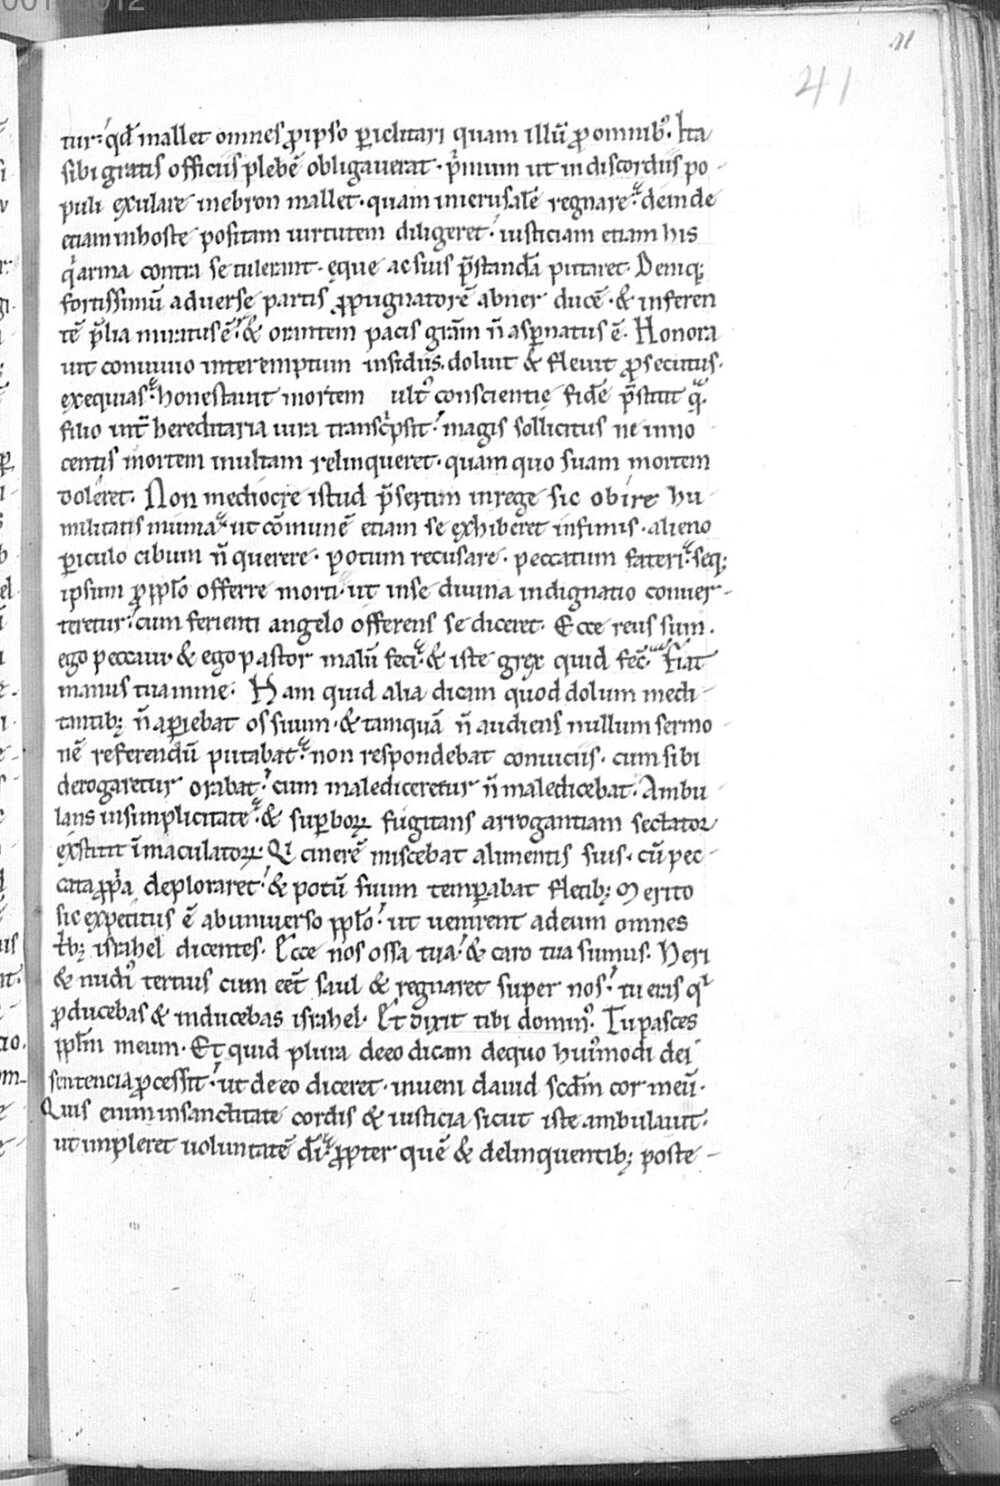 41
41
tur. qđ mallet omnes ꝓ ipso ꝑiclitari quam illū ꝓ omnibꝰ. Ita
sibi gratis officiis plebē obligauerat. p̄mum ut in discordiis po-
puli exulare in ebron mallet. quam in ierusalē regnare. deinde
etiam in hoste positam uirtutem diligeret. iusticiam etiam his
q̄ arma contra se tulerant. ęque ac suis p̄standā putaret. Deniq;
fortissimū aduersę partis ꝓpugnatorē abner ducē. & inferen
tē p̄lia miratus ē. & orantem pacis grām n̄ asꝑnatus ē. Honora
uit conuiuio interemptum insidiis. doluit & fleuit ꝓsecutus.
exequias. honestauit mortem ultꝰ conscientię fidē p̄stitit q̄.
filio int̄ hereditaria iura transcͥpsit. magis sollicitus ne inno
centis mortem inultam relinqueret. quam quo suam mortem
doleret. Non mediocre istud p̄sertim in rege sic obire hu-
militatis munia. ut cōmunē etiam se exhiberet infimis. alieno
ꝑiculo cibum n̄ querere. potum recusare. peccatum fateri. seq;
ipsum ꝓ ppl̄o offerre morti. ut in se diuina indignatio conuer-
teretur. cum ferienti angelo offerens se diceret. Ecce reus sum.
ego peccaui & ego pastor malū feci. & iste grex quid fec̄. Fiat
manus tua in me. Nam quid alia dicam quod dolum medi-
tantib; n̄ aꝑiebat os suum. & tamquā n̄ audiens nullum sermo-
nē referendū putabat. non respondebat conuiciis. cum sibi
derogaretur orabat. cum malediceretur n̄ maledicebat. Ambu
lans in simplicitate. & suꝑboꝝ fugitans arrogantiam sectator
exstitit īmaculatoꝝ. Qͥ cinerē miscebat alimentis suis. cū pec-
cata ꝓpͥa deploraret. & potū suum temꝑabat fletib; Merito
sic expetitus ē ab uniuerso ppl̄o. ut uenirent ad eum omnes
tͥb; israhel dicentes. Ecce nos ossa tua. & caro tua sumus. Heri
& nudiꝰ tertius cum eēt saul & regnaret super nos. tu eras qͥ
ꝓducebas & inducebas israhel. Et dixit tibi dominꝰ. Tu pasces
ppl̄m meum. Et quid plura de eo dicam de quo huiꝰmodi dei
sentencia ꝓcessit. ut de eo diceret. inueni dauid scd̄m cor meū.
Quis enim in sanctitate cordis & iusticia sicut iste ambulauit.
ut impleret uoluntatē dī. ꝓpter quē & delinquentib; poste-